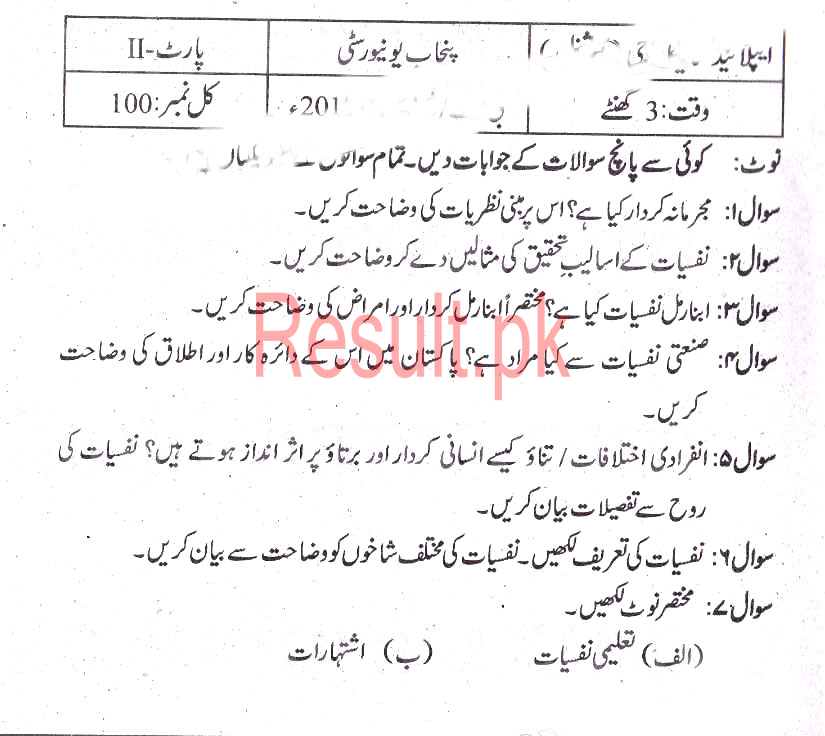 ایپلائیڈ پنجاب یونیورسٹی پارٹ-II
وقت: 3 گھنٹے 201ء کل نمبر: 100
نوٹ: کوئی سے پانچ سوالات کے جوابات دیں۔ تمام سوالوں
سوال ۱: مجرمانہ کردار کیا ہے؟ اس پر مبنی نظریات کی وضاحت کریں۔
سوال ۲: نفسیات کے اسالیبِ تحقیق کی مثالیں دے کر وضاحت کریں۔
سوال ۳: ابنارمل نفسیات کیا ہے؟ مختصراً ابنارمل کردار اور امراض کی وضاحت کریں۔
سوال ۴: صنعتی نفسیات سے کیا مراد ہے؟ پاکستان میں اس کے دائرہ کار اور اطلاق کی وضاحت
کریں۔
Result.pk
سوال ۵: انفرادی اختلافات / تناؤ کیسے انسانی کردار اور برتاؤ پر اثر انداز ہوتے ہیں؟ نفسیات کی
روح سے تفصیلات بیان کریں۔
سوال ۶: نفسیات کی تعریف لکھیں۔ نفسیات کی مختلف شاخوں کو وضاحت سے بیان کریں۔
سوال ۷: مختصر نوٹ لکھیں۔
(الف) تعلیمی نفسیات (ب) اشتہارات